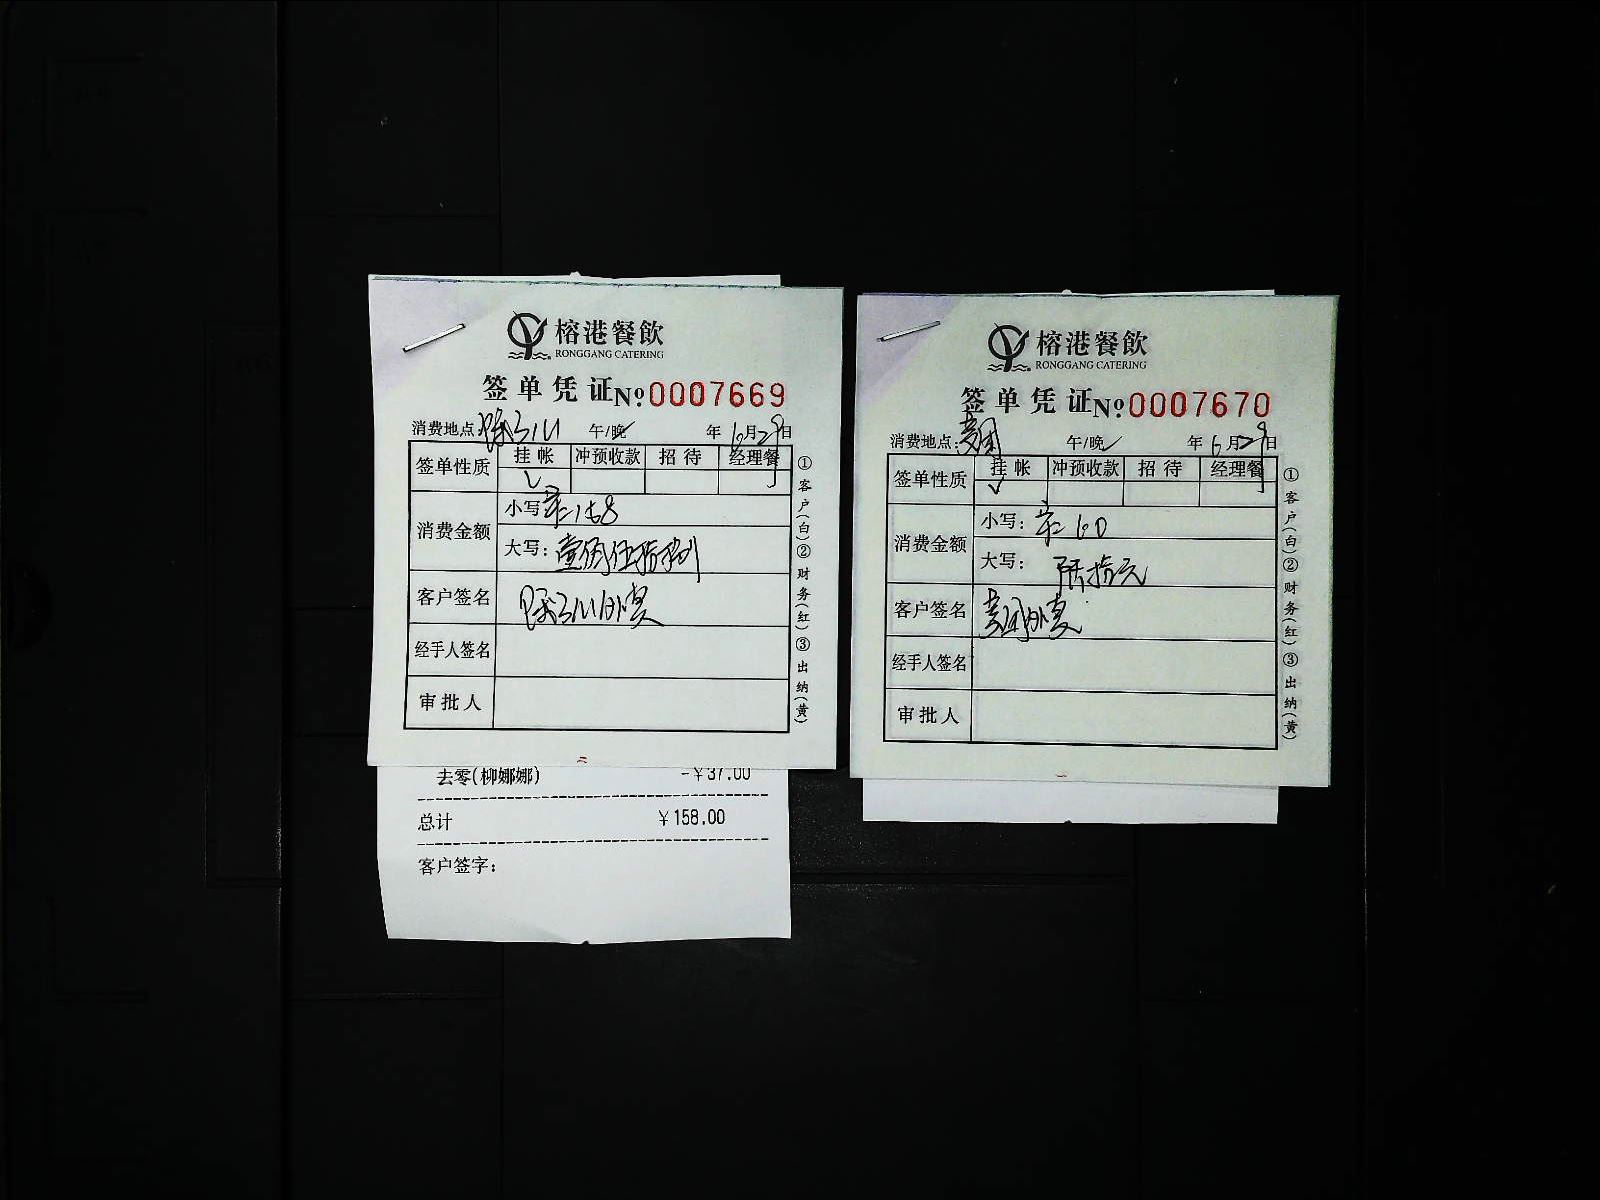 榕港餐飲
RONGGANG CATERING
签单凭证 № 0007669
消费地点: 午/晚✓ 年 6月29日
签单性质 挂帐 冲预收款 招待 经理餐
✓
消费金额
小写 158
大写: 壹佰伍拾捌
客户签名
经手人签名
审批人
①客户(白)②财务(红)③出纳(黄)
去零(柳娜娜) -¥37.00
总计 ¥158.00
客户签字:
榕港餐飲
RONGGANG CATERING
签单凭证 № 0007670
消费地点: 午/晚✓ 年 6月29日
签单性质 挂帐 冲预收款 招待 经理餐
✓
消费金额
小写: 60
大写: 陆拾元
客户签名
经手人签名
审批人
①客户(白)②财务(红)③出纳(黄)